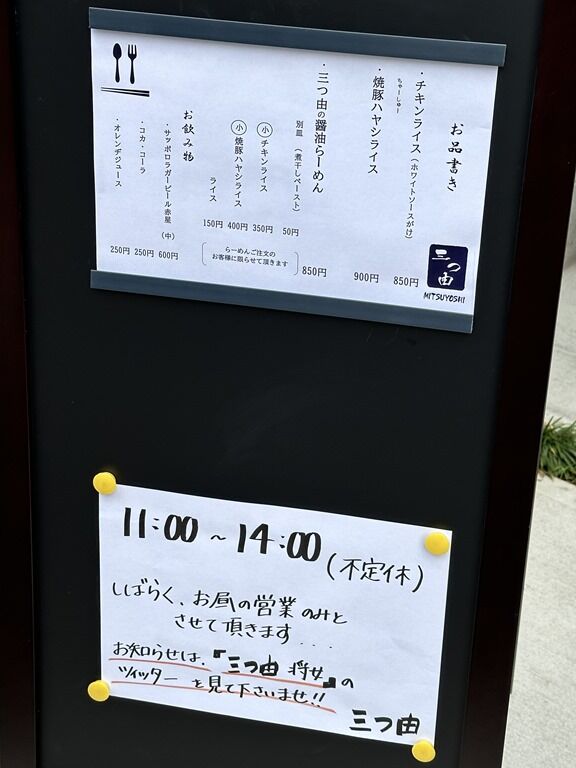 お品書き
・チキンライス（ホワイトソースがけ）
850円
ちゃーしゅー
・焼豚ハヤシライス
900円
・三つ由の醤油らーめん
850円
別皿（煮干しペースト）
50円
小 チキンライス
350円
小 焼豚ハヤシライス
400円
ライス
150円
らーめんご注文の
お客様に限らせて頂きます
お飲み物
・サッポロラガービール赤星（中）
600円
・コカ・コーラ
250円
・オレンヂジュース
250円
三つ由
MITSUYOSHI
11:00～14:00(不定休)
しばらく、お昼の営業のみと
させて頂きます....
お知らせは、『三つ由 将女』の
ツイッターを見て下さいませ!!
三つ由